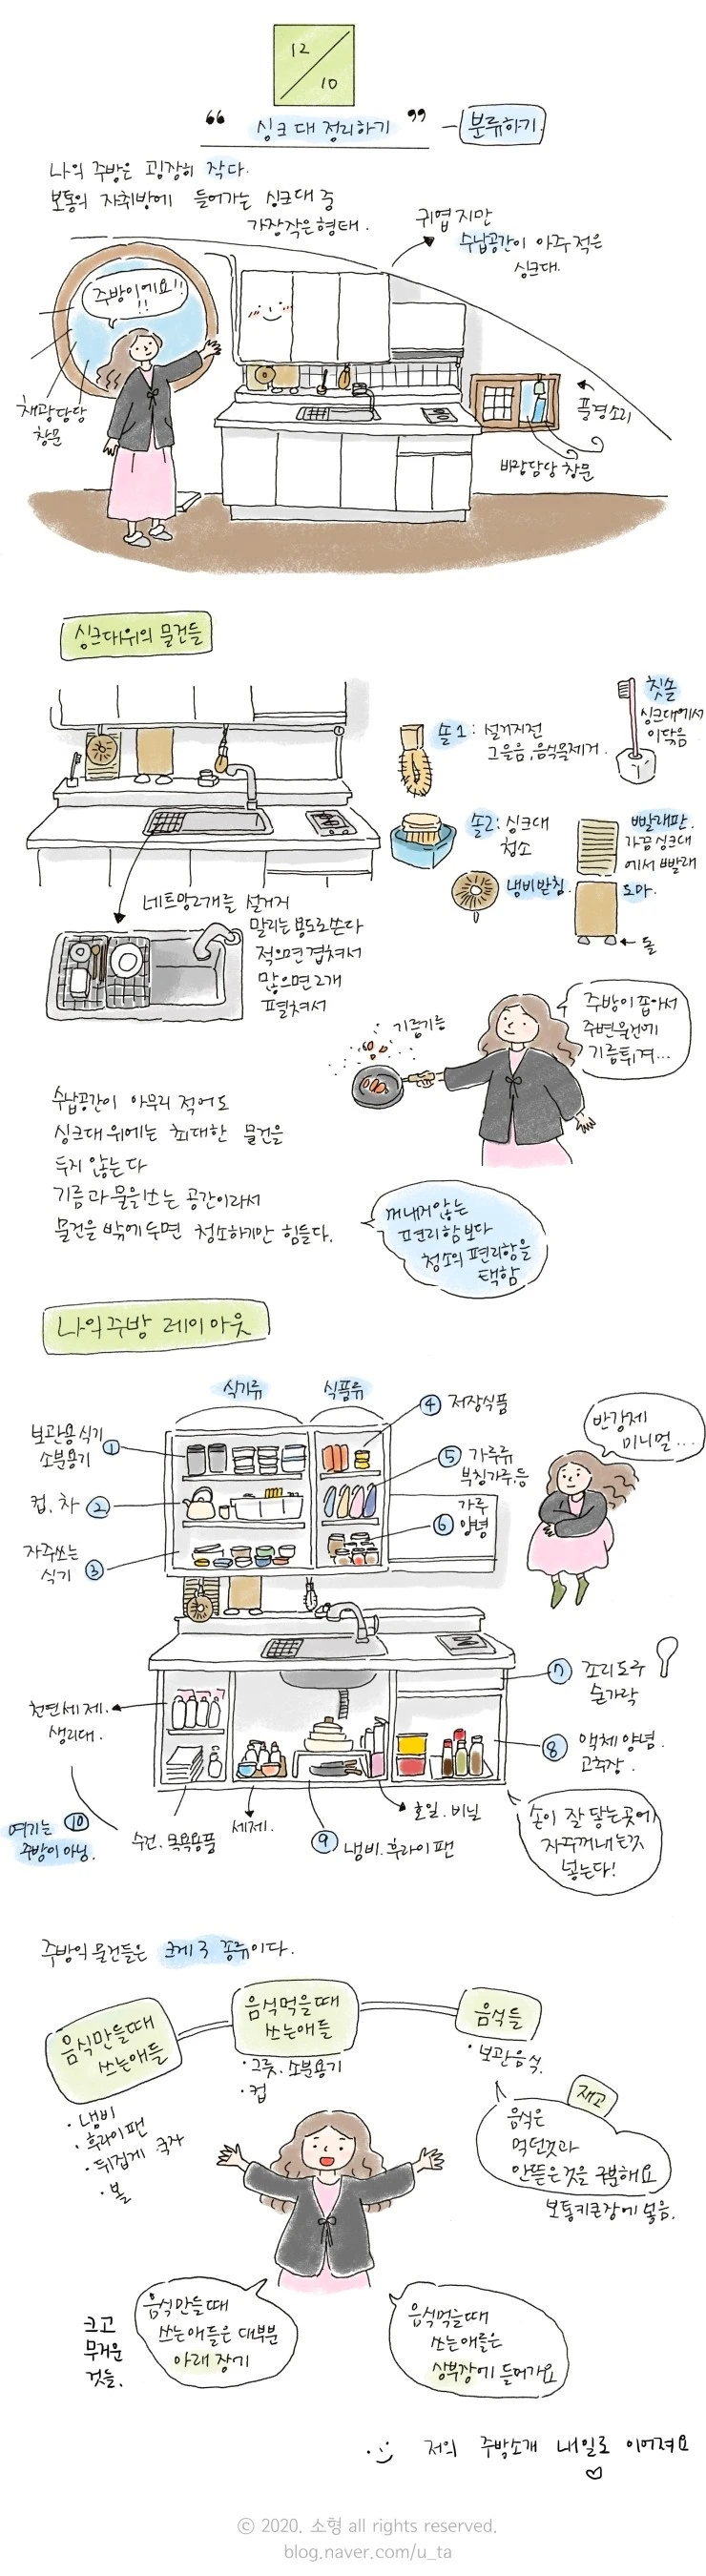 12
10
"싱크대 정리하기" - 분류하기
나의 주방은 굉장히 작다.
보통의 자취방에 들어가는 싱크대 중
가장작은형태.
귀엽지만
수납공간이 아주적은
싱크대.
주방이에요!!
!!
채광담당
창문
풍경소리
바람담당 창문
싱크대위의 물건들
솔1: 설거지전
그을음, 음식물제거.
칫솔
싱크대에서
이닦음
솔2: 싱크대
청소
빨래판.
가끔 싱크대
에서 빨래
냄비받침.
도마.
돌
네트망2개를 설거지
말리는 용도로쓴다
적으면 겹쳐서
많으면 2개
펼쳐서
기름기름
주방이 좁아서
주변물건에
기름튀겨...
수납공간이 아무리 적어도
싱크대 위에는 최대한 물건을
두지 않는다
기름과 물을쓰는 공간이라서
물건을 밖에두면 청소하기만 힘들다.
꺼내지않는
편리함보다
청소의 편리함을
택함
나의주방 레이아웃
식기류
식품류
보관용식기
소분용기 ①
컵, 차 ②
자주쓰는
식기 ③
④ 저장식품
⑤ 가루류
부침가루,등
⑥ 가루
양념
반강제
미니멀...
⑦ 조리도구
숟가락
⑧ 액체 양념.
고추장.
천연세제.
생리대.
여기는 ⑩
주방이 아님.
수건. 목욕용품
세제.
⑨ 냄비.후라이팬
호일.비닐
손이 잘 닿는곳에
자꾸꺼내는것
넣는다!
주방의 물건들은 크게 3 종류이다.
음식만들때
쓰는애들
음식먹을때
쓰는애들
음식들
·냄비
·후라이팬
·뒤집게 국자
·볼
·그릇.소분용기
·컵
·보관음식.
재고
음식은
먹던것과
안뜯은것을 구분해요
보통키큰장에 넣음.
크고
무거운
것들.
음식만들때
쓰는애들은 대부분
아래 장에
음식먹을때
쓰는애들은
상부장에 들어가요
저의 주방소개 내일로 이어져요
ⓒ 2020. 소형 all rights reserved.
blog.naver.com/u_ta